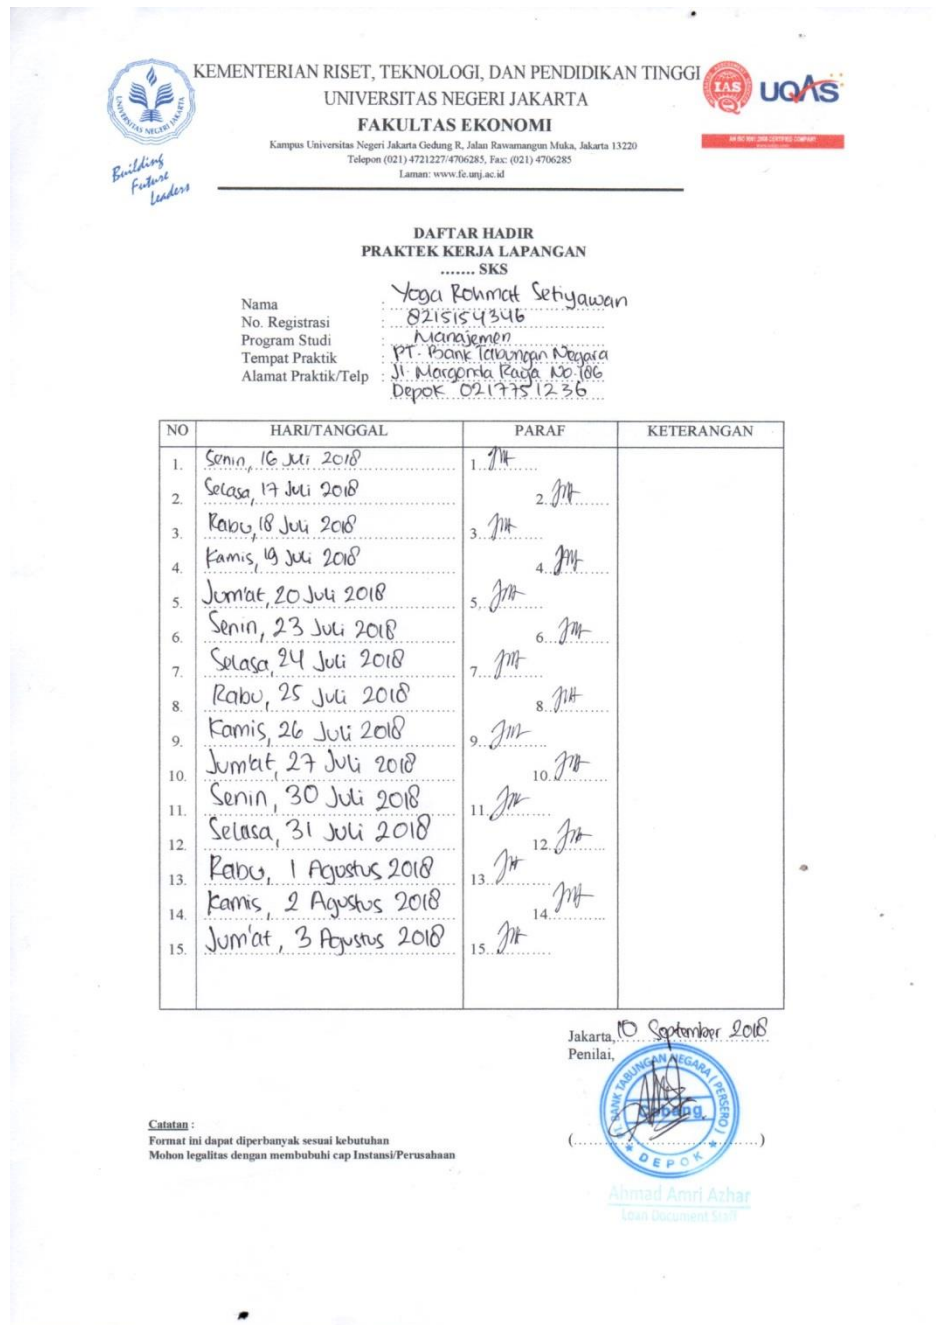 KEMENTERIAN RISET, TEKNOLOGI, DAN PENDIDIKAN TINGGI
UNIVERSITAS NEGERI JAKARTA
FAKULTAS EKONOMI
Kampus Universitas Negeri Jakarta Gedung R, Jalan Rawamangun Muka, Jakarta 13220
Telepon (021) 4721227/4706285, Fax: (021) 4706285
Laman: www.fe.unj.ac.id
UNIVERSITAS NEGERI JAKARTA
Building
Future
Leaders
IAS
UQAS
AN ISO 9001:2008 CERTIFIED COMPANY
DAFTAR HADIR
PRAKTEK KERJA LAPANGAN
....... SKS
Nama : Yoga Rohmat Setiyawan
No. Registrasi : 8215154346
Program Studi : Manajemen
Tempat Praktik : PT. Bank Tabungan Negara
Alamat Praktik/Telp : Jl. Margonda Raya No. 186
Depok 0217751236
NO HARI/TANGGAL PARAF KETERANGAN
1. Senin, 16 Juli 2018 1.
2. Selasa, 17 Juli 2018 2.
3. Rabu, 18 Juli 2018 3.
4. Kamis, 19 Juli 2018 4.
5. Jum'at, 20 Juli 2018 5.
6. Senin, 23 Juli 2018 6.
7. Selasa, 24 Juli 2018 7.
8. Rabu, 25 Juli 2018 8.
9. Kamis, 26 Juli 2018 9.
10. Jum'at, 27 Juli 2018 10.
11. Senin, 30 Juli 2018 11.
12. Selasa, 31 Juli 2018 12.
13. Rabu, 1 Agustus 2018 13.
14. Kamis, 2 Agustus 2018 14.
15. Jum'at, 3 Agustus 2018 15.
Jakarta, 10 September 2018
Penilai,
BANK TABUNGAN NEGARA (PERSERO)
Cabang
DEPOK
(..............................)
Ahmad Amri Azhar
Loan Document Staff
Catatan :
Format ini dapat diperbanyak sesuai kebutuhan
Mohon legalitas dengan membubuhi cap Instansi/Perusahaan